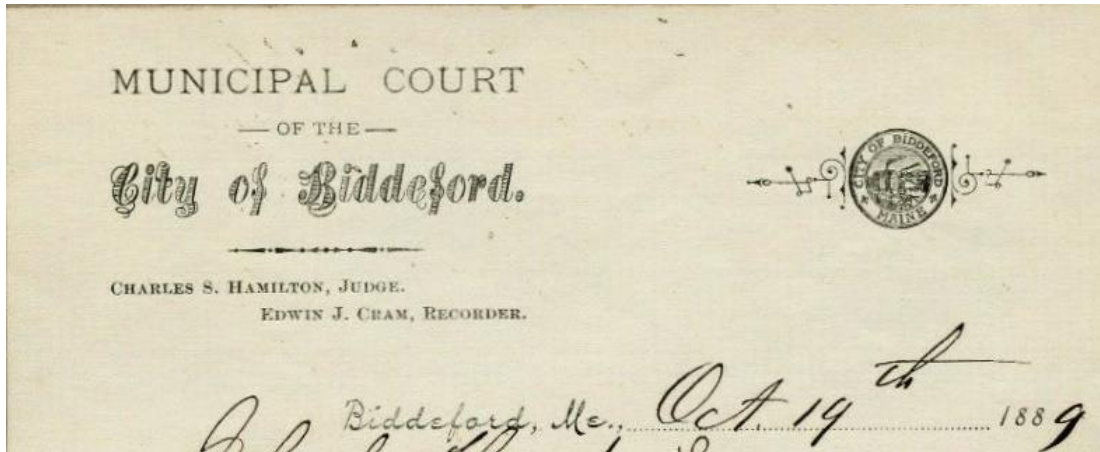 MUNICIPAL COURT
OF THE
City of Biddeford.
CITY OF BIDDEFORD
MAINE
CHARLES S. HAMILTON, JUDGE.
EDWIN J. CRAM, RECORDER.
Biddeford, Me., Oct. 19th 1889